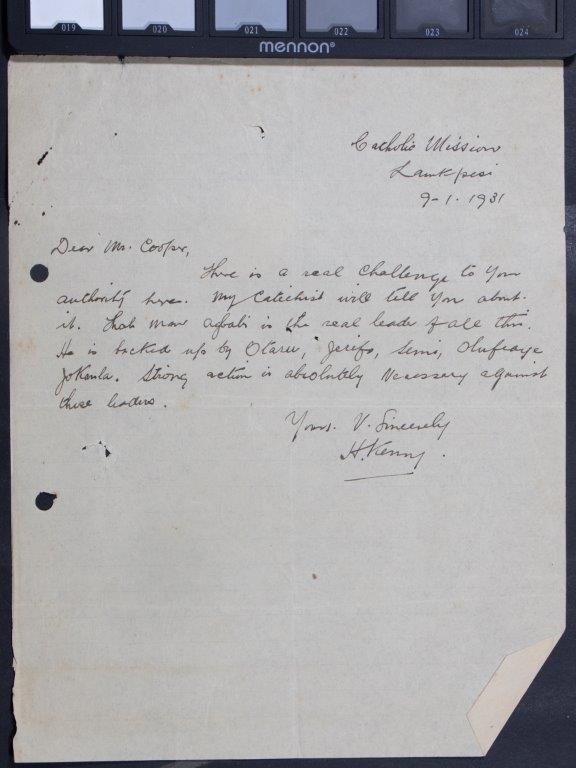 019 020 021 022 023 024
mennon®
Catholic Mission
9-1-1931
Dear Mr. Cooper,
There is a real challenge to your
authority here. My Catechist will tell you about
it. That man Agbabi is the real leader of all this.
He is backed up by Otaru, Jerifo, Semi,
Strong action is absolutely necessary against
these leaders.
Yours V. Sincerely
H. Kenny.